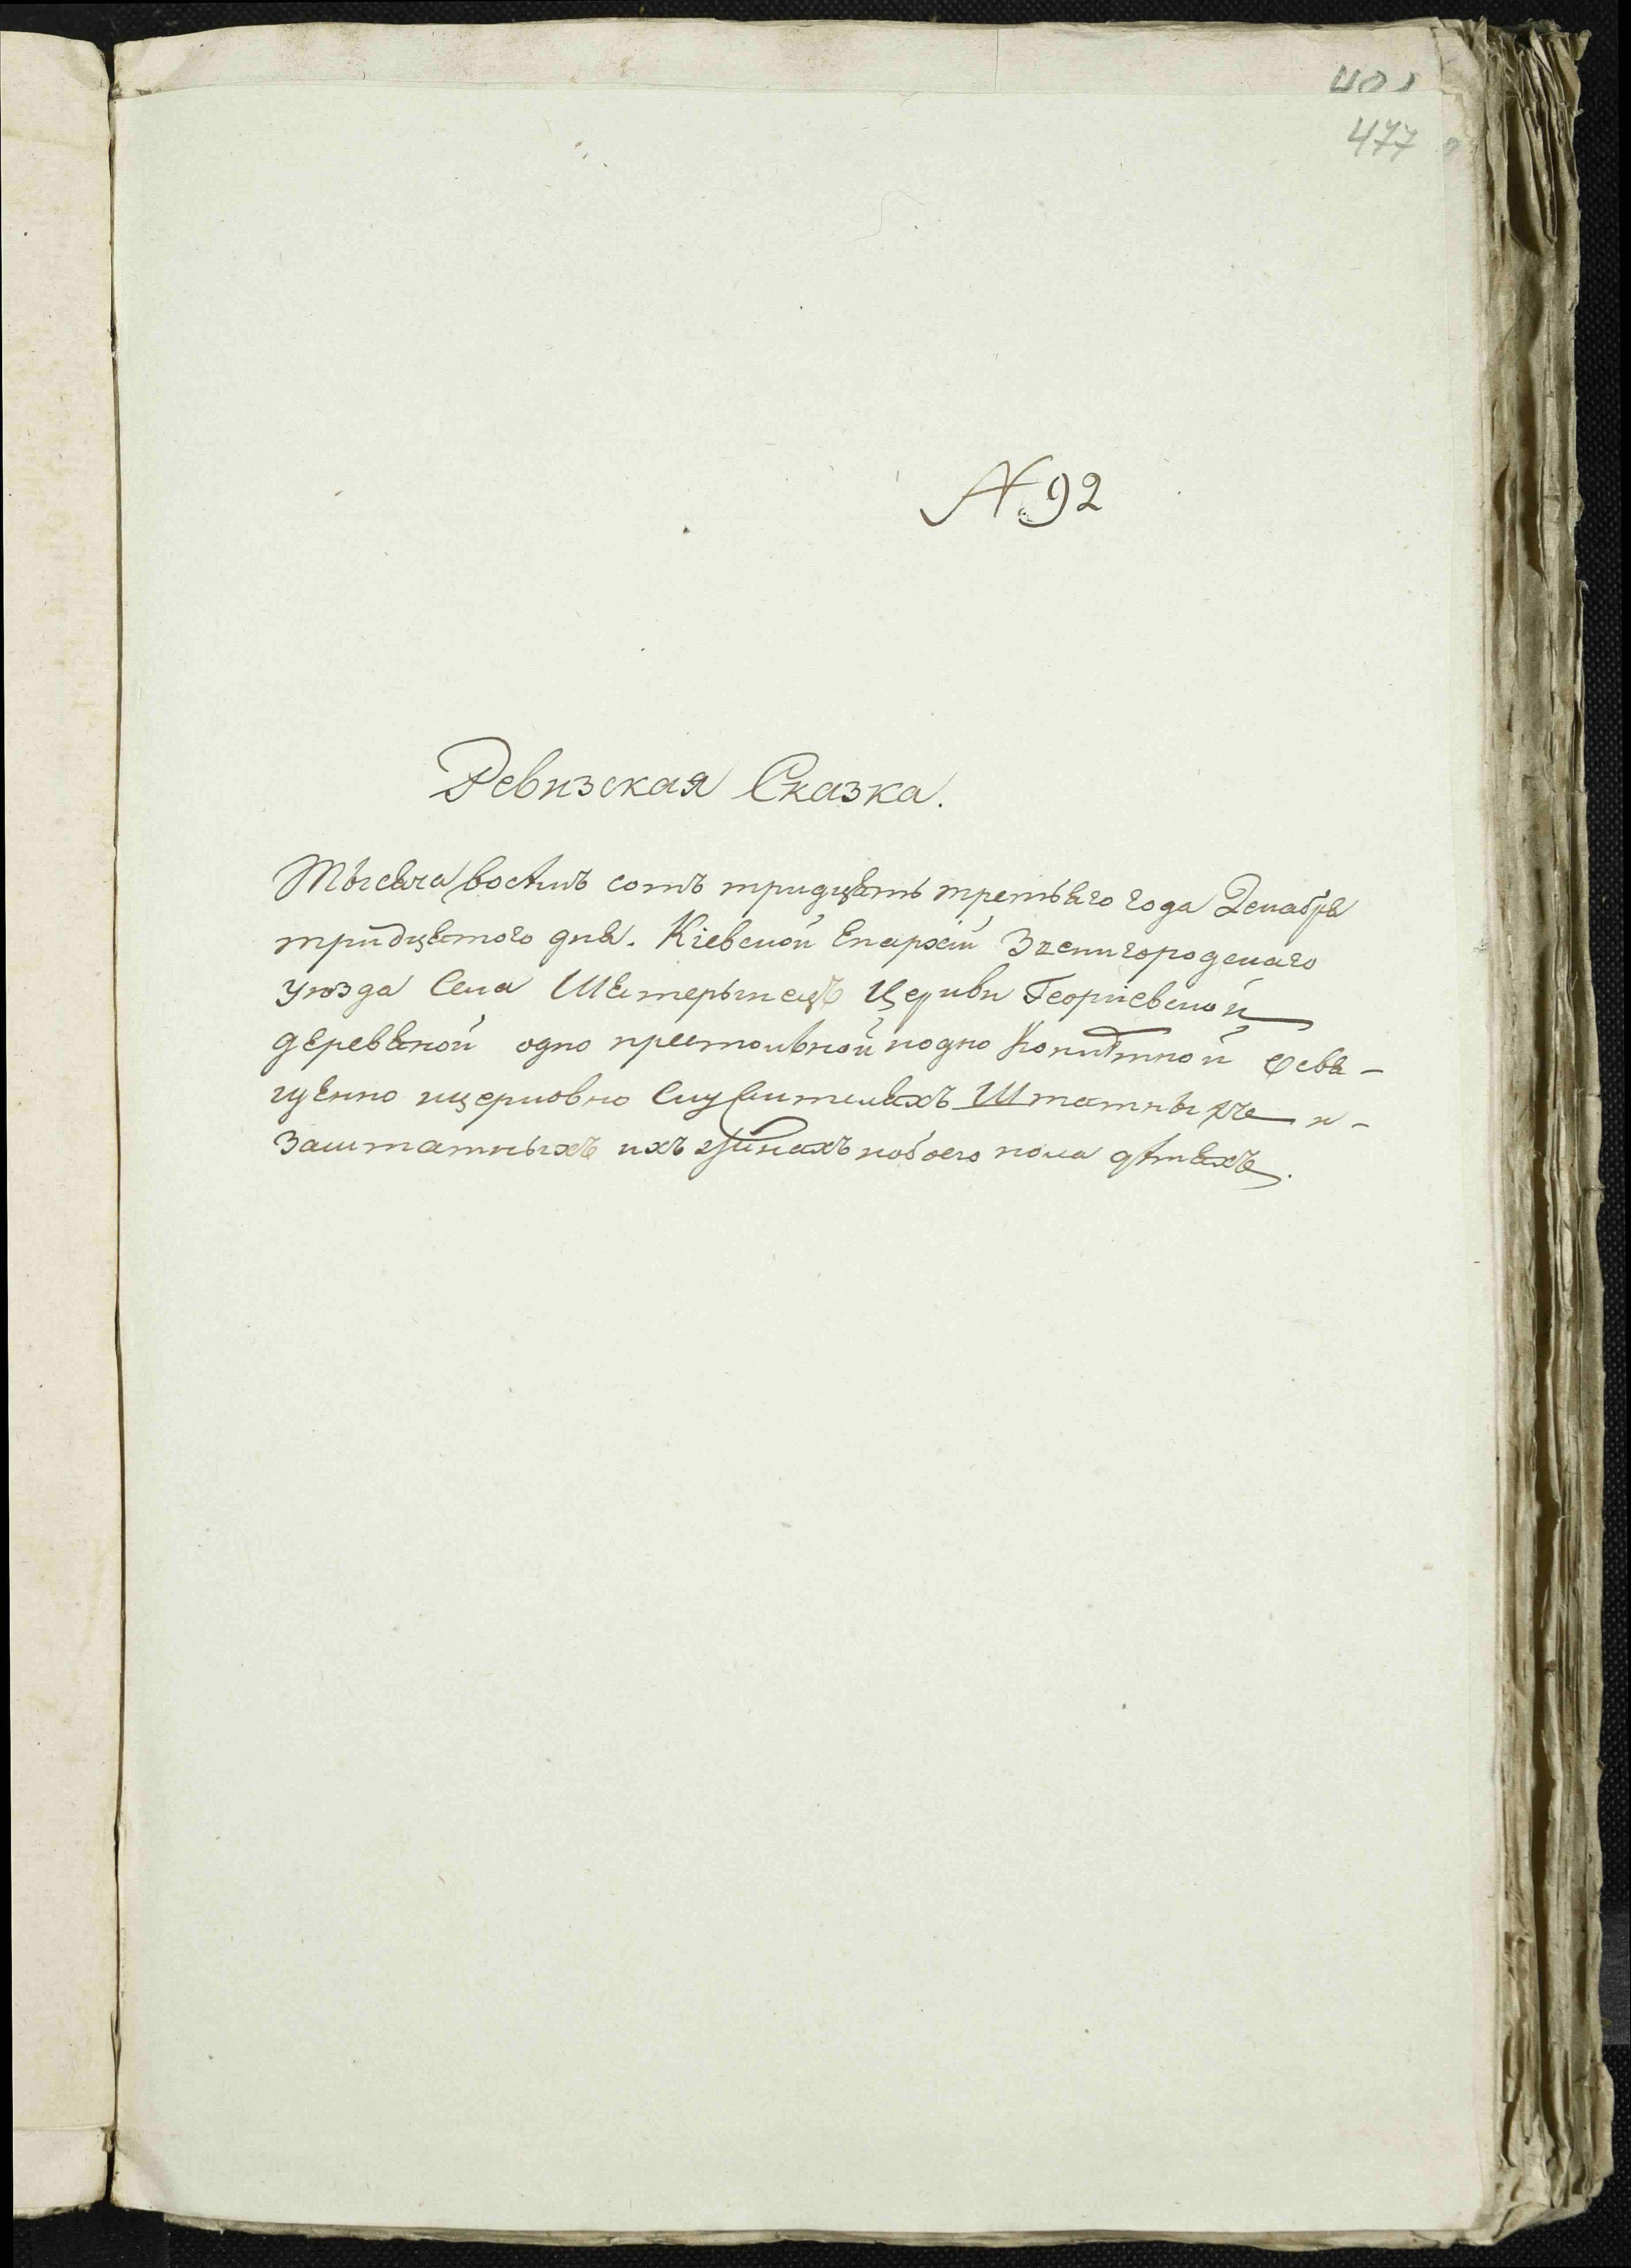 477
№ 92
Ревизская Сказка.
Тысяча восемь сотъ тридцять третьяго года Декабря
тридцятого дня. Кіевской Епархіи Звенигородскаго
уезда Села Шатерыщецъ Церкви Георгіевской
деревяной одно престольной и одно Комплтной О свя-
щенно ицерковно Служителяхъ Штатныхъ и-
Заштатныхъ ихъ женахъ иобоего пола дѣтяхъ.